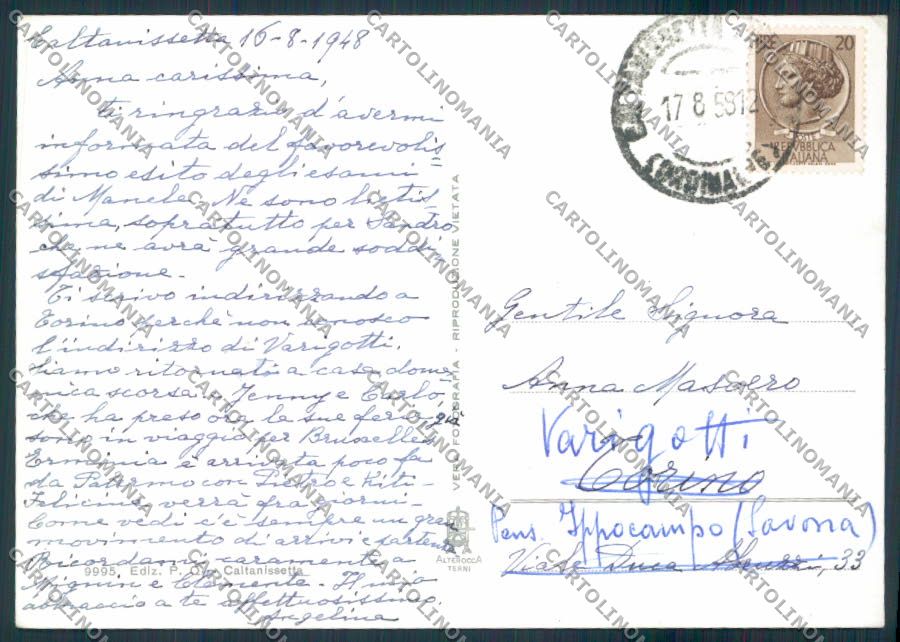 Caltanissetta 16-8-1948
Anna carissima,
ti ringrazio d'avermi
informata del favorevolis=
simo esito degli esami
di Manele. Ne sono lietis=
sima, sopratutto per Sandro
che ne avrà grande soddi=
sfazione.
Ti scrivo indirizzando a
Torino perchè non conosco
l'indirizzo di Varigotti.
Siamo ritornati a casa dome=
nica scorsa. Jenny e Carlo,
che ha preso ora le sue ferie, già
sono in viaggio per Bruxelles
Erminia è arrivata poco fa
da Palermo con Pietro e Riti-
Felicina verrà fra giorni-
Come vedi c'è sempre un gran
movimento di arrivi e partenze
Ricordami caramente a
Mignin e Clemente. Il mio
abbraccio a te affettuosissimo.
Angelina
9995. Ediz. P. Caltanissetta
VERA FOTOGRAFIA - RIPRODUZIONE VIETATA
ALTEROCCA
TERNI
17 8 58 12
20
REPVBBLICA
ITALIANA
Gentile Signora
Anna Masoero
Varigotti
Torino
Pens. Ippocampo (Savona)
Viale Duca Abruzzi, 33
CARTOLINOMANIA